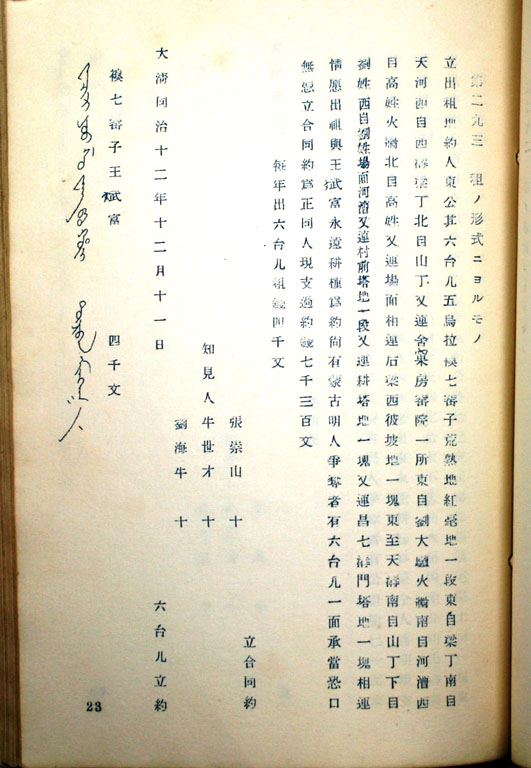 第二九三 租ノ形式ニヨルモノ
立出租地約人東公其六台儿五烏拉襖七審子荒熟地紅毫地一段東自梁丁南自
天河西自西溝梁丁北自山丁又連舍菓房審院一所東自劉大驢火溝南自河漕西
自高姓火溝北自高姓又連場面相連后梁西彼坡地一塊東至天溝南自山丁下自
劉姓西自劉姓場面河漕又連村前塔地一段又連耕塔地一塊又連昌七溝門塔地一塊相連
情愿出租與王斌富永遠耕種為約尚有蒙古明人爭奪者有六台儿一面承當恐口
無憑立合同約為正同人現支過約錢七千三百文
每年出六台儿租錢四千文
立合同約
張崇山 十
知見人牛世才 十
劉海牛 十
大清同治十二年十二月十一日 六台儿立約
襖七審子王斌富 四千文
23